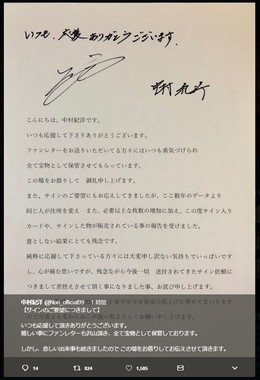 いつも、大変ありがとうございます。
中村紀洋
こんにちは、中村紀洋です。
いつも応援して下さりありがとうございます。
ファンレターをお送りいただいてる方々にはいつも勇気づけられ
全て宝物として保管させてもらっています。
この場をお借りして 御礼申し上げます。
また、サインのご要望にもお応えしてきましたが、ここ数年のデータより
同じ人が住所を変え また、必要以上な枚数の増加に加え、この度サイン入り
カードや、サインした物が販売されている事の報告を受けました。
意としない結果にとても残念です。
純粋に応援して下さっている方々には大変申し訳ない気持ちでいっぱいです
し、心が痛む思いですが、残念ながら今後一切 送付されてきたサイン依頼に
つきまして差控えさせて頂く事になりました事、お詫び申し上げます。
中村紀洋 @Nori_official99 · 1時間
【サインのご要望につきまして】
いつも応援して頂きありがとうございます。
嬉しい事にファンレターも沢山頂き、全て宝物として保管しております。
しかし、悲しい出来事も続きましたので この場をお借りしてお伝えさせて頂きます。
14
824
1,585